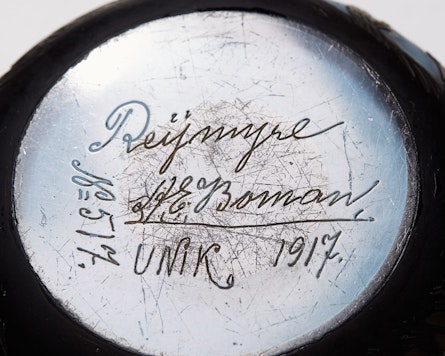 Reijmyre
A.E. Boman.
UNIK. 1917.
No 517.